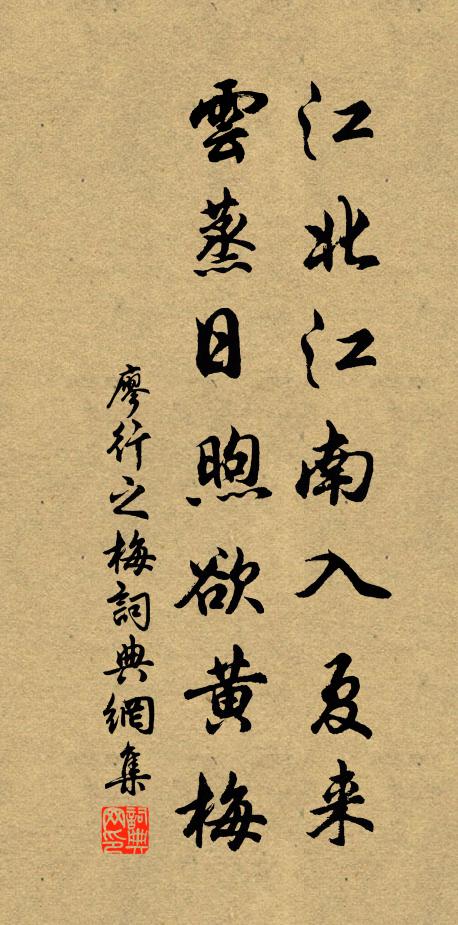 江北江南入夏来
雲蒸日煦欲黃梅
廖行之梅詞典網集
詞典网印